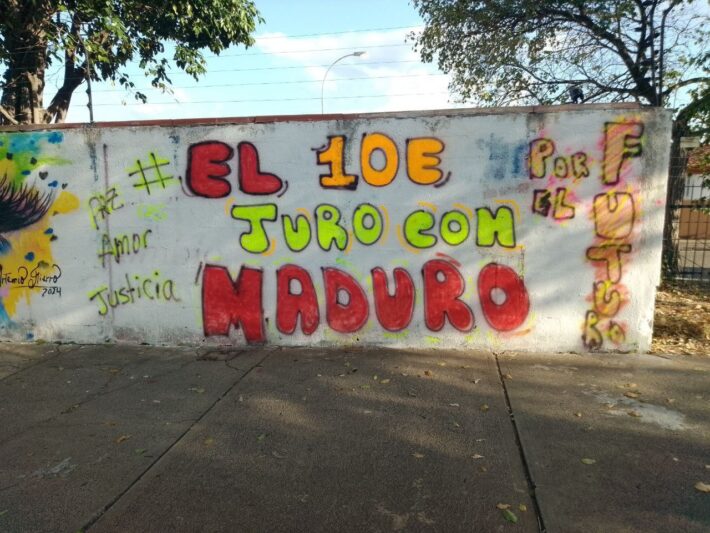 PAZ
Amor
Justicia
# EL 10E
JURO CON
MADURO
POR
EL
FUTURO